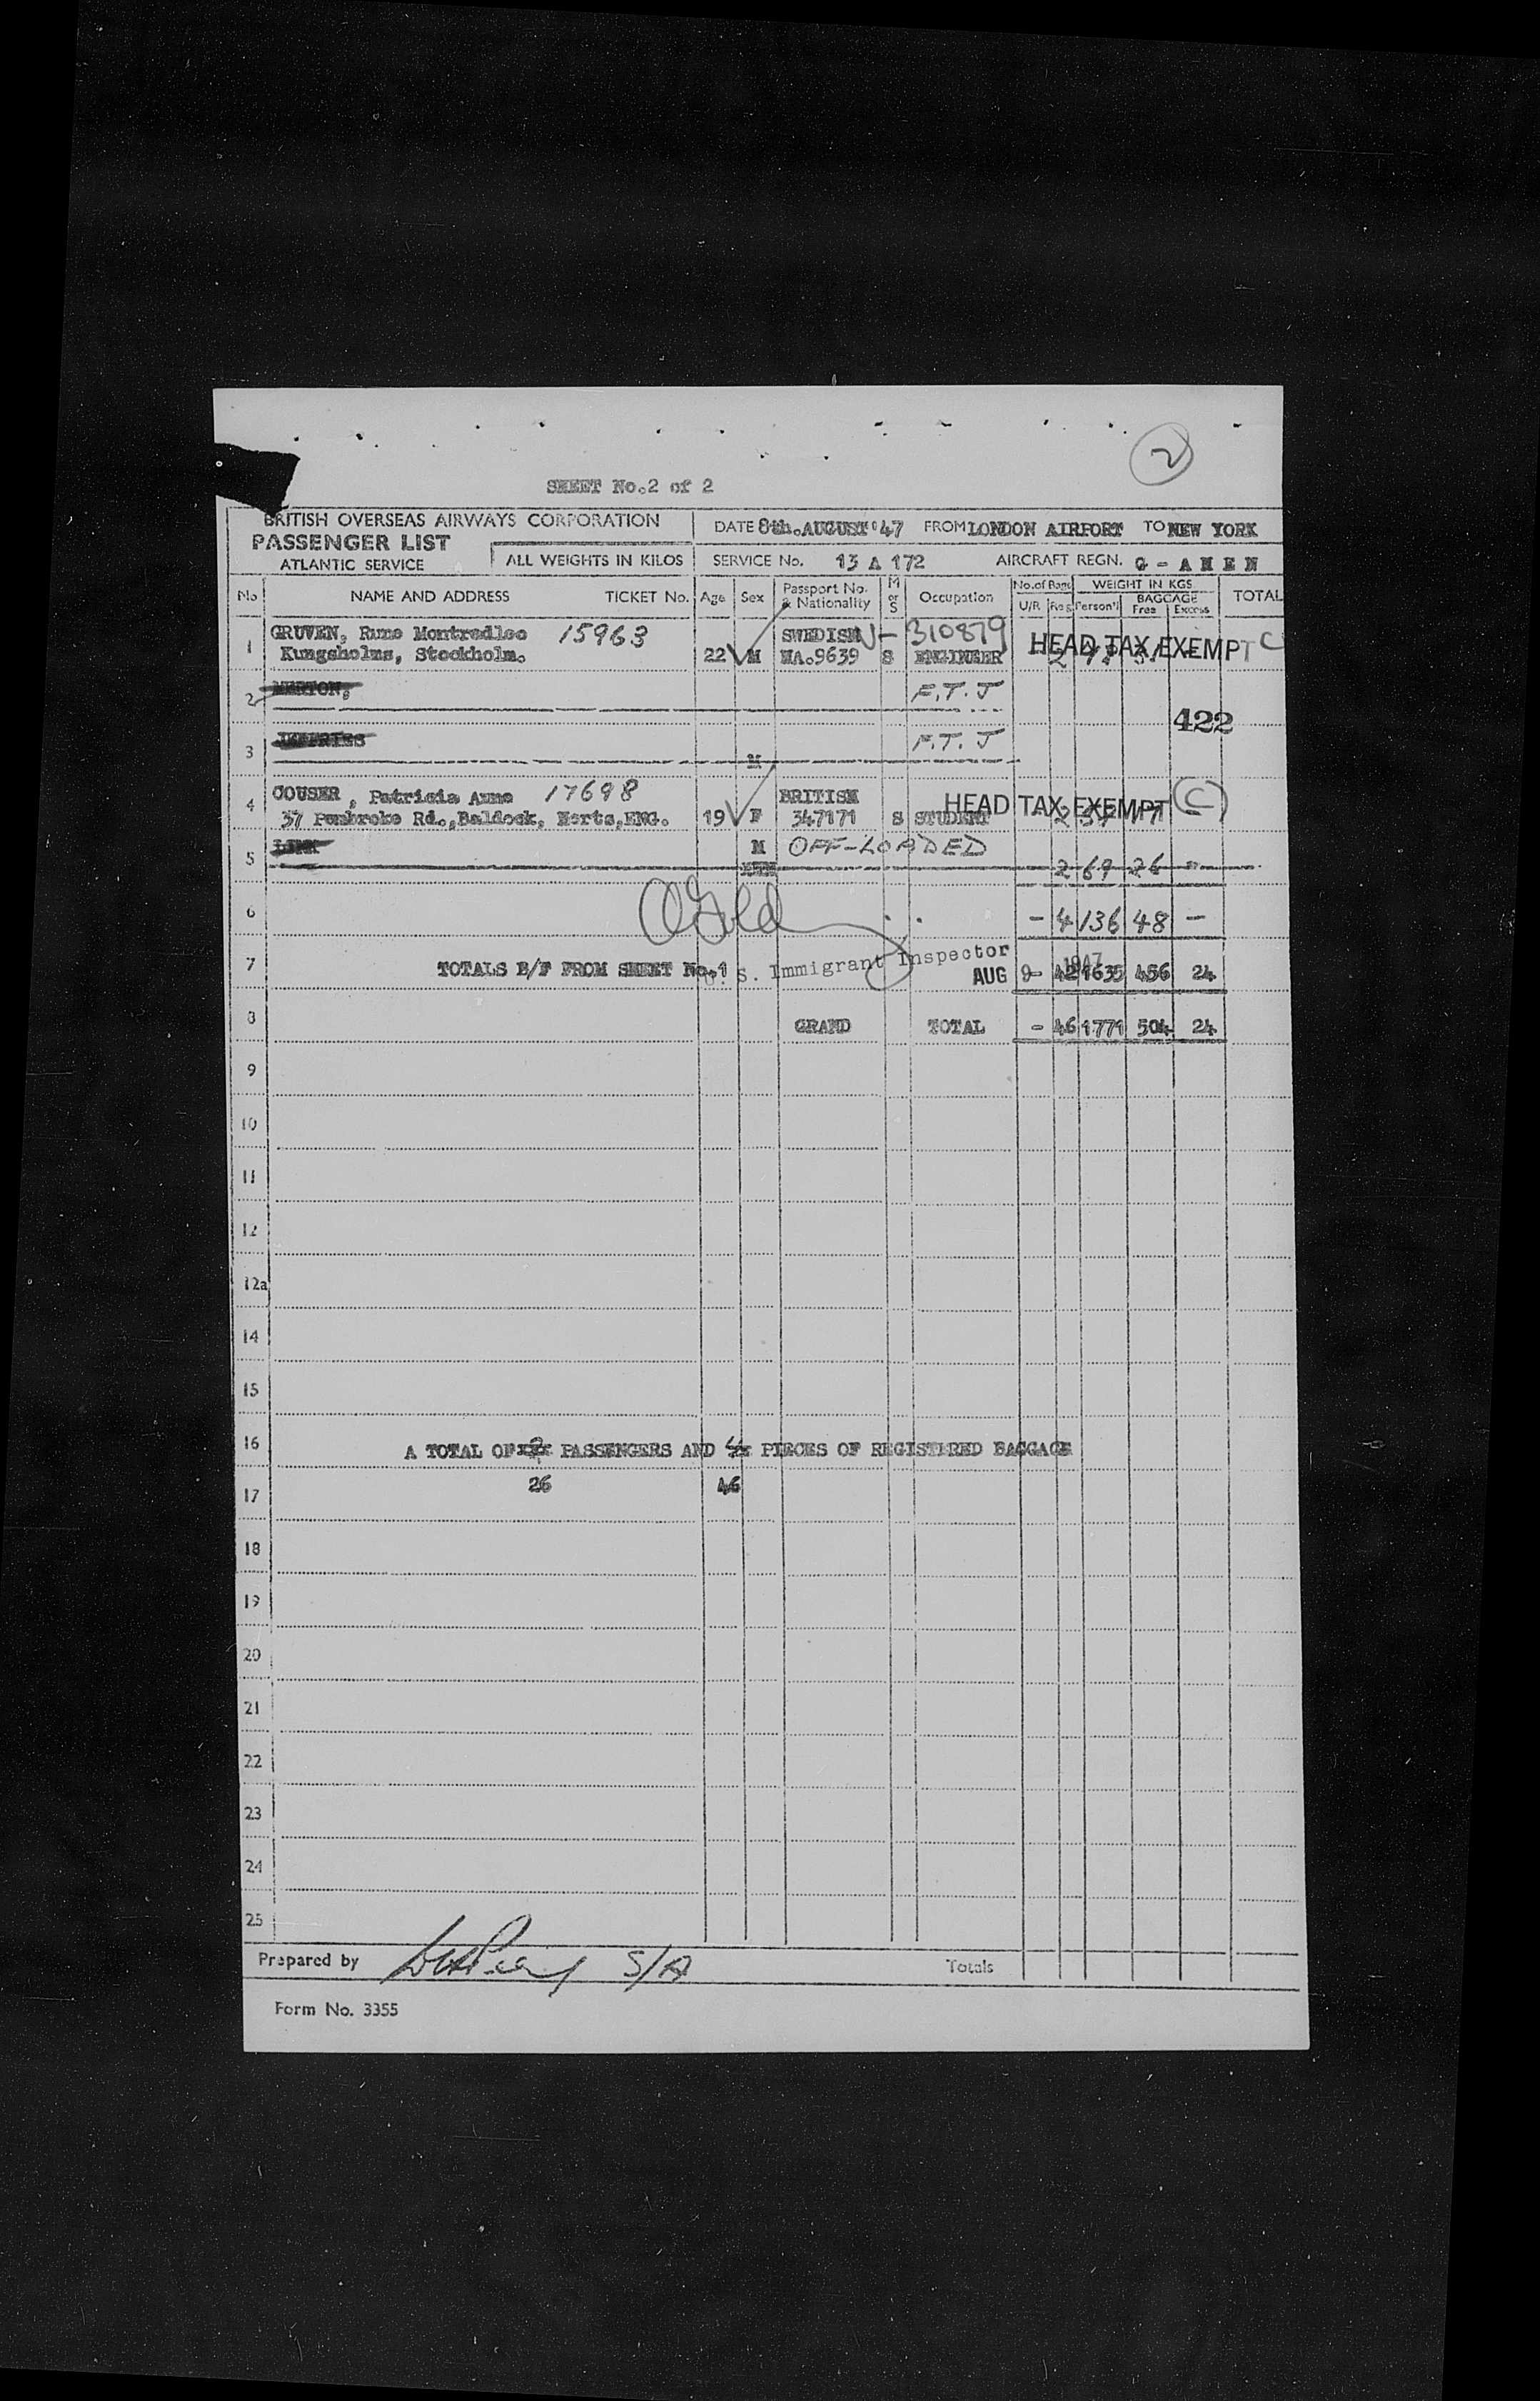 2
SHEET No.2 of 2
BRITISH OVERSEAS AIRWAYS CORPORATION
PASSENGER LIST
ATLANTIC SERVICE
ALL WEIGHTS IN KILOS
DATE 8th.AUGUST'47 FROM LONDON AIRPORT TO NEW YORK
SERVICE No. 13 A 172 AIRCRAFT REGN. G - A H E N
No NAME AND ADDRESS TICKET No. Age Sex Passport No. & Nationality M or S Occupation No. of Bags U/R Reg WEIGHT IN KGS Person'l BAGGAGE Free Excess TOTAL
1 GRUVEN, Rune 15963 SWEDISH V- 310879 HEAD TAX EXEMPT C
Kungsholms, Stockholm. 22 M 9639 S ENGINEER
2 MERTON, F.T.J
422
3 JEFFRIES M F.T.J
4 COUSER, Patricia Anne 17698 BRITISH HEAD TAX EXEMPT C
37 Pembroke Rd.,Baldock, Herts,ENG. 19 F 347171 S STUDENT
5 M OFF-LOADED
2 69 26 -
6 - 4 136 48 -
7 TOTALS B/F FROM SHEET No.1 U. S. Immigrant Inspector
AUG 9 1947 - 42 1635 456 24
8 GRAND TOTAL - 46 1771 504 24
9
10
11
12
12a
14
15
16 A TOTAL OF PASSENGERS AND PIECES OF REGISTERED BAGGAGE
17 26 46
18
19
20
21
22
23
24
25
Prepared by S/A Totals
Form No. 3355